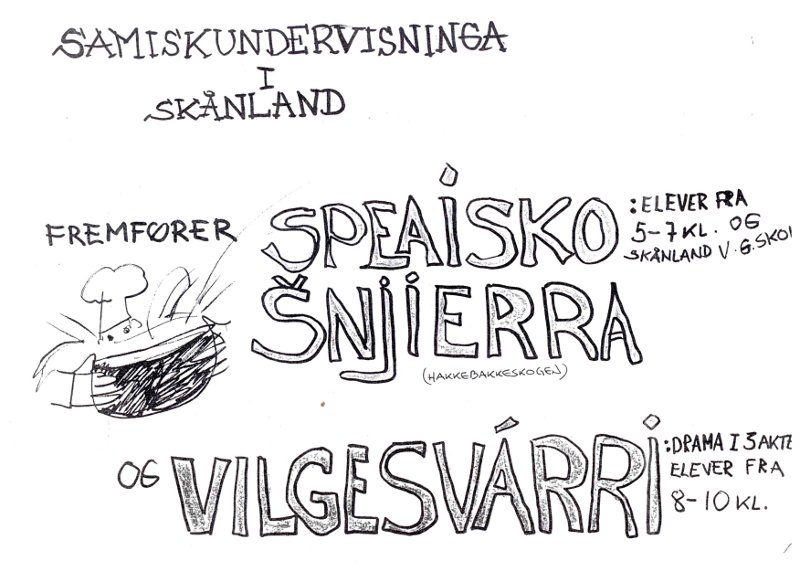 SAMISKUNDERVISNINGA
I
SKÅNLAND
FREMFØRER
SPEAISKO
ŠNJIERRA
(HAKKEBAKKESKOGEN)
:ELEVER FRA
5-7 KL. OG
SKÅNLAND V.G.SKOL
OG VILGESVÁRRI
:DRAMA I 3 AKTE
ELEVER FRA
8-10 KL.